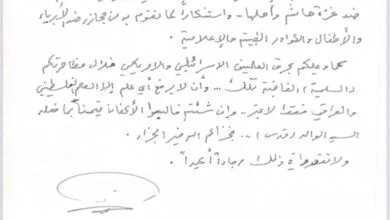 ضد غزة هاشم وأهلها - واستنكاراً لما تقوم به من مجازر ضد الأبرياء
والأطفال والكوادر الطبية والإعلامية.
كما وعليكم بحرق العلمين الاسرائيلي والامريكي خلال مظاهرتكم
السلمية الغاضبة تلك ... وأن لا يرفع أي علم إلا العلم الفلسطيني
والعراقي فقط لا غير - وان شئتم فالبسوا الأكفان تيمناً بما فعله
السيد الوالد (قدس) ... فجزاكم الله خير الجزاء.
ولا تقصروا في ذلك رجاءً أكيداً.